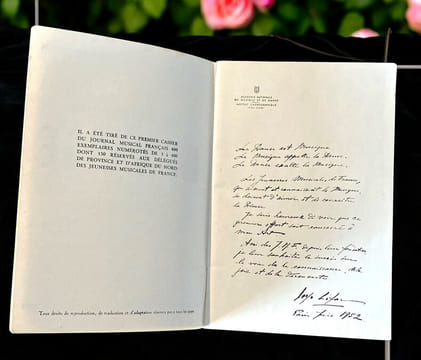 IL A ÉTÉ TIRÉ DE CE PREMIER CAHIER
DU JOURNAL MUSICAL FRANÇAIS 600
EXEMPLAIRES NUMÉROTÉS DE 1 à 600
DONT 150 RÉSERVÉS AUX DÉLÉGUÉS
DE PROVINCE ET D'AFRIQUE DU NORD
DES JEUNESSES MUSICALES DE FRANCE.
Tous droits de reproduction, de traduction et d'adaptation réservés pour tous les pays
ACADÉMIE NATIONALE
DE MUSIQUE ET DE DANSE
INSTITUT CHORÉGRAPHIQUE
La Danse est Musique
La Musique appelle la Danse.
La Danse exalte la Musique.
Les Jeunesses Musicales de France,
qui aiment et connaissent la Musique,
se doivent d'aimer et de connaître
la Danse
Je suis heureux de voir que ce
premier effort soit consacré à
mon Art
Aux J.M.F. de
je leur souhaite la
la voie de la connaissance, de la
joie et de la découverte
Serge Lifar
Paris 1952